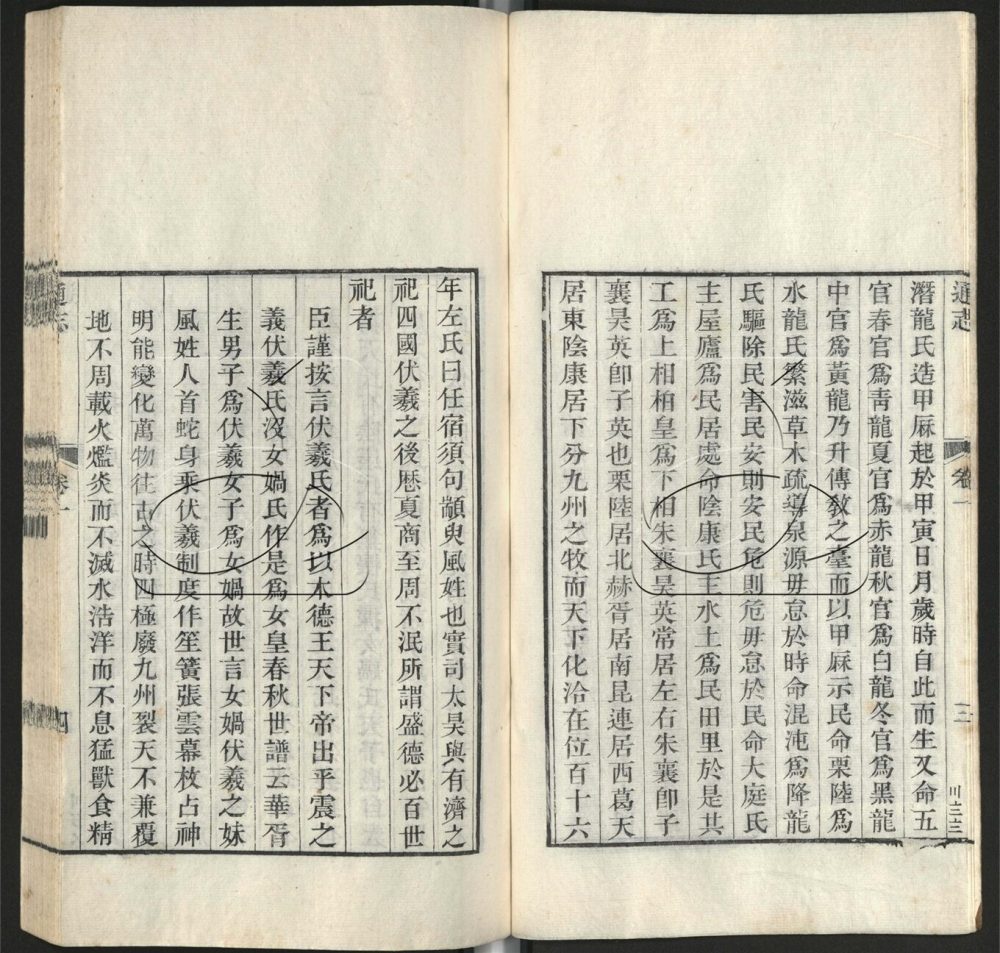 通志
卷一
三
川三三
潛龍氏造甲厤起於甲寅日月歲時自此而生又命五
官春官爲靑龍夏官爲赤龍秋官爲白龍冬官爲黑龍
中官爲黃龍乃升傳敎之臺而以甲厤示民命栗陸爲
水龍氏繁滋草木疏導泉源毋怠於時命混沌爲降龍
氏驅除民害民安則安民危則危毋怠於民命大庭氏
主屋廬爲民居處命陰康氏主水土爲民田里於是共
工爲上相柏皇爲下相朱襄昊英常居左右朱襄卽子
襄昊英卽子英也栗陸居北赫胥居南昆連居西葛天
居東陰康居下分九州之牧而天下化洽在位百十六
年左氏曰任宿須句顓臾風姓也實司太昊與有濟之
祀四國伏羲之後厯夏商至周不泯所謂盛德必百世
祀者
臣謹按言伏羲氏者爲以木德王天下帝出乎震之
義伏羲氏沒女媧氏作是爲女皇春秋世譜云華胥
生男子爲伏羲女子爲女媧故世言女媧伏羲之妹
風姓人首蛇身乘伏羲制度作笙簧張雲幕枚占神
明能變化萬物往古之時四極廢九州裂天不兼覆
地不周載火爁炎而不滅水浩洋而不息猛獸食精
通志
卷一
四